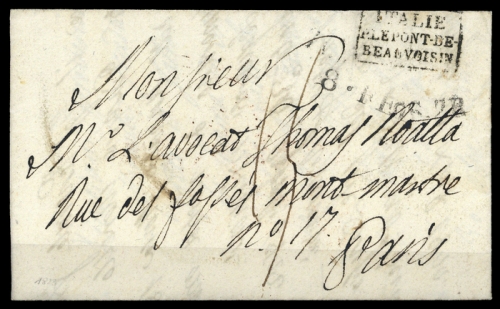 ITALIE
PLEPONT-DE-
BEAUVOISIN
Monsieur
Mr. L'avocat Thomas
Rue des fossés mont-martre
no. 17.
Paris